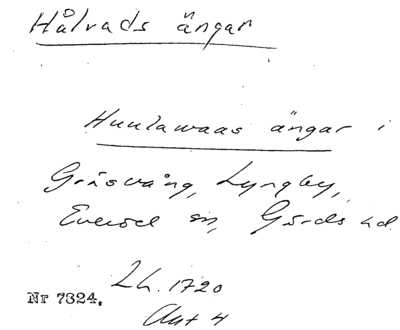 Hålvads ängar
Huulawaas ängar i
Gräsvång, Lyngby,
Everöd sn, Gärds hd.
Lh. 1720
Nr 7324.
Akt 4